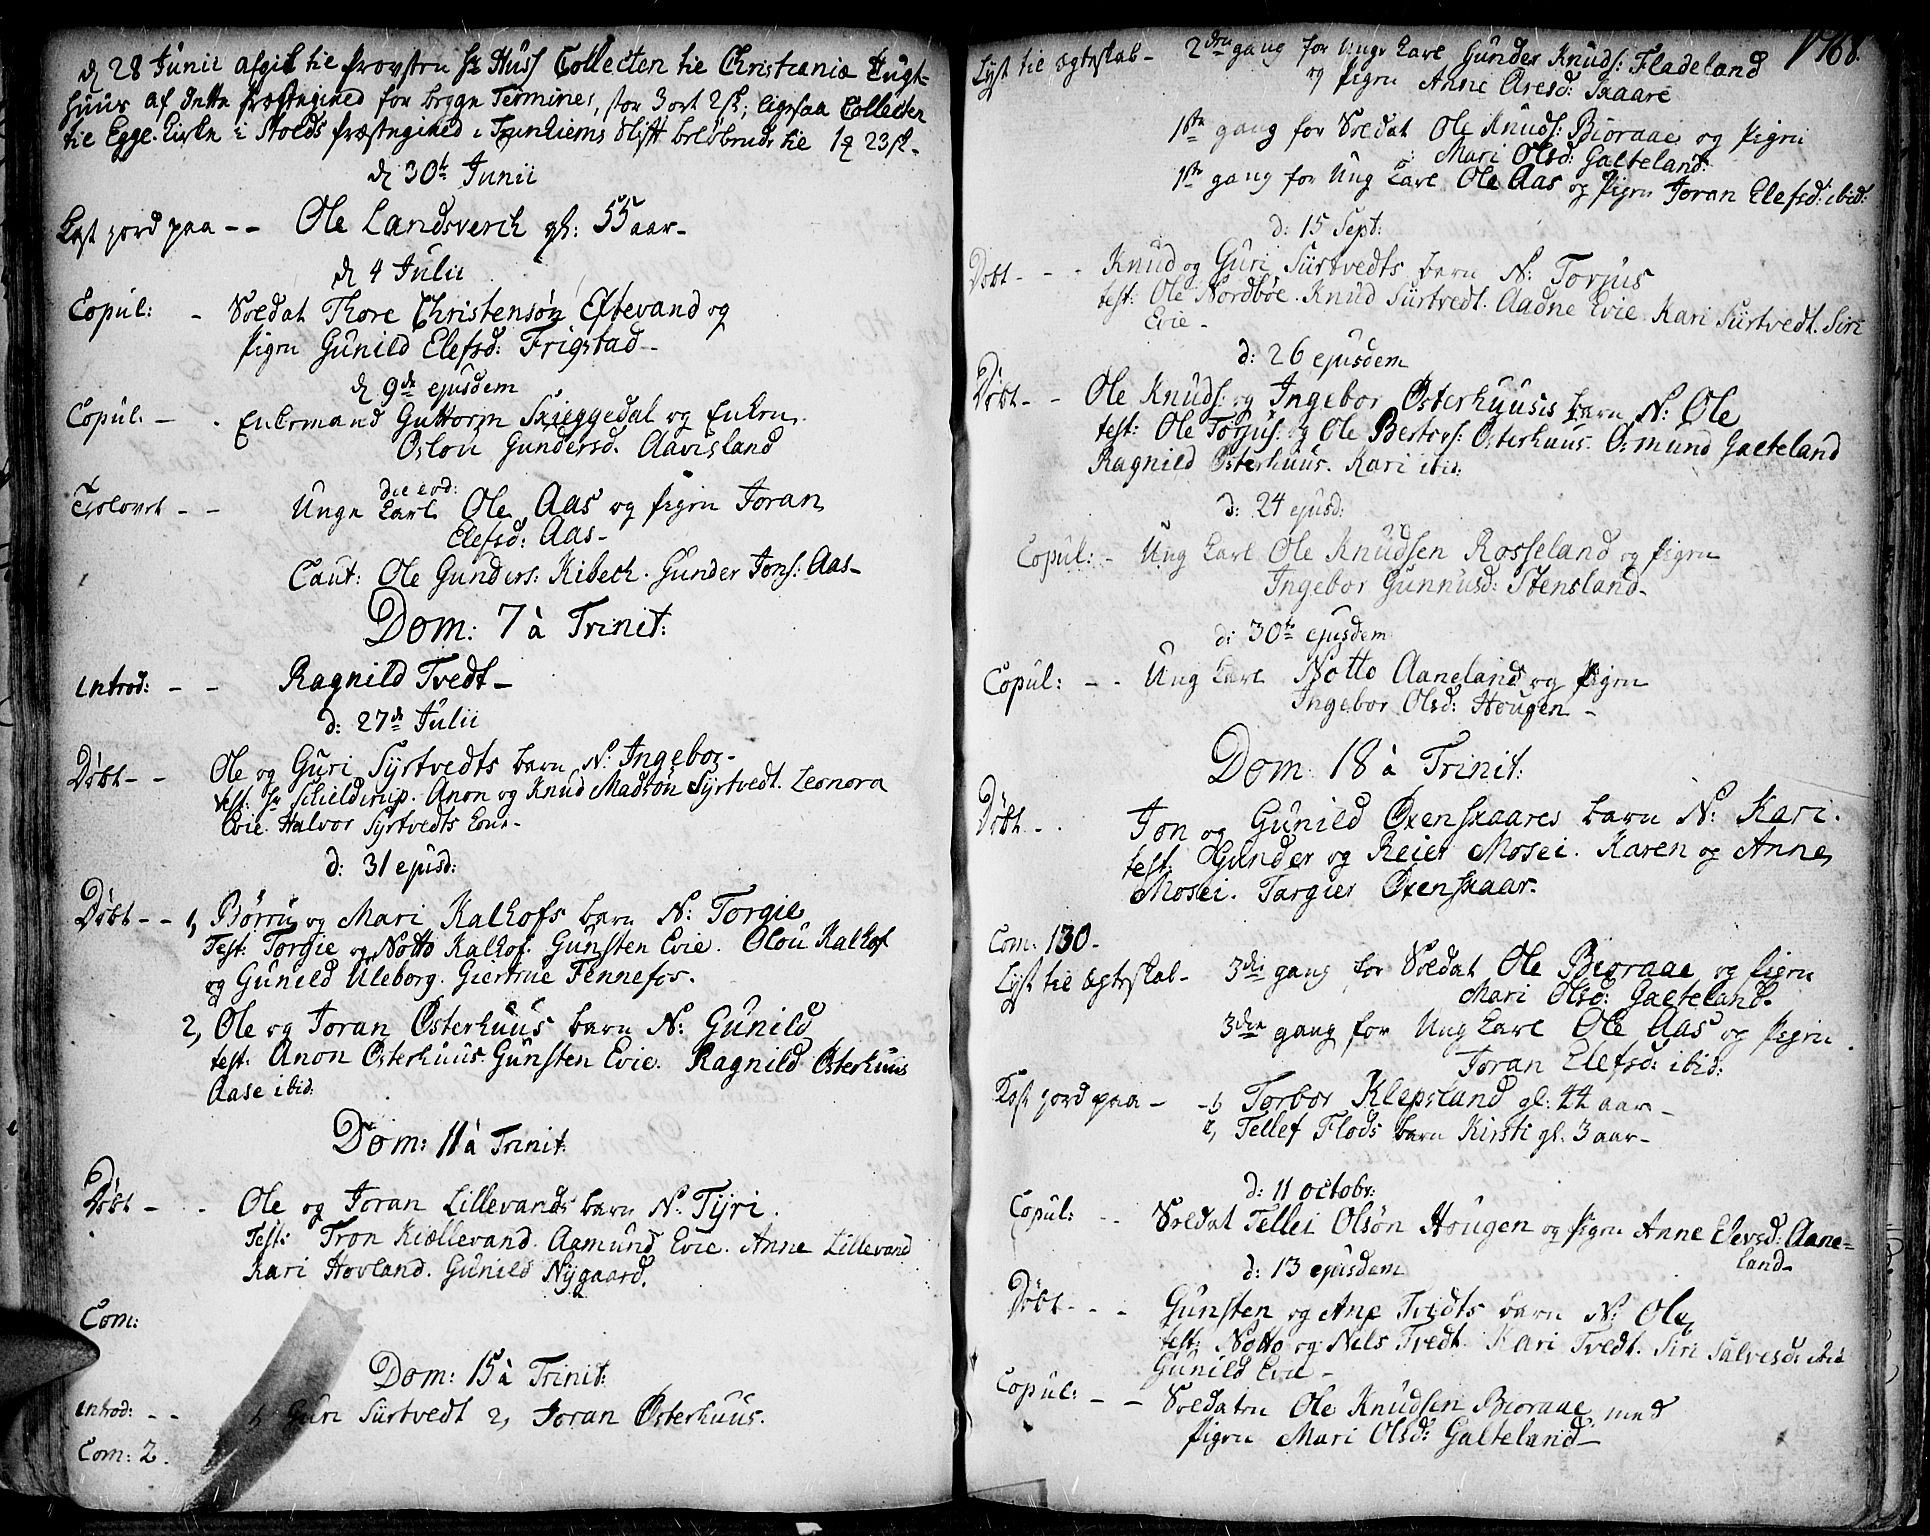 d 28 Junii afgik til Provsten Hr Huss Collecten til Christianiæ Tugt-
huus af dette Præstegield for begge Terminer, stor 3 ort 2 s; ligesaa Collecten
til Egge Kirke i Stoeds Præstegield i Trunhiems Stift beløbende til 1 23 s.
d 30te Junii
Kast jord paa -- Ole Landsverch gl: 55 aar-
d 4 Julii
Copul: - Soldat Thore Christensøn Eftevand og
Pigen Gunild Elefsd: Frigstad-
d 9de ejusdem
Copul: - Enkemand Guttorm Skieggedal og Enken
Oslou Gundersd. Aavisland
die eod:
Troelovet -- Unge Karl Ole Aas og Pigen Joran
Elefsd: Aas-
Caut: Ole Gunders: Kibech. Gunder Jons: Aas-
Dom: 7 à Trinit:
introd: -- Ragnild Tvedt-
d: 27de Julii
Døbt -- Ole og Guri Syrtvedts barn N: Ingebor-
test: Hr Schielderup. Anon og Knud Madsøn Syrtvedt. Leonora
Evie. Halvor Syrtvedts Kone-
d: 31 ejusd:
Døbt -- 1, Børru og Mari Kalhofs barn N: Torgie
Test: Torgie og Notto Kalhof. Gunsten Evie. Olou Kalhof
og Gunild Uleborg. Giertrue Fennefos.
2, Ole og Joran Østerhuus barn N: Gunild
test: Anon Østerhuus. Gunsten Evie. Ragnild Østerhuus
Aase ibid.
Dom: 11 à Trinit:
Døbt - - Ole og Joran Lillevands barn N: Tyri.
Test: Tron Kiællevand. Aamund Evie. Anne Lillevand
Kari Hovland. Gunild Nygaard.
Com:
Dom: 15 à Trinit:
introd: -- 1, Guri Siirtvedt 2, Joran Østerhuus.
Com: 2.
1768.
Lyst til Egteskab- 2den gang for Unge Karl Gunder Knuds: Fladeland
og Pigen Anne Aresd: Skaare
1ste gang for Soldat Ole Knuds: Bioraae og Pigen
Mari Olsd: Galteland.
1ste gang for Ung Karl Ole Aas og Pigen Joran Elefsd: ibid:
d: 15 Sept:
Døbt - - - Knud og Guri Siirtvedts barn N: Torjus
test: Ole Nordbøe. Knud Siirtvedt. Aadne Evie. Kari Siirtvedt. Siri
Evie-
d: 26 ejusdem
Døbt -- Ole Knuds: og Ingebor Østerhuuses barn N: Ole
test: Ole Torjus: og Ole Bertors: Østerhuus. Ormund Galteland
Ragnild Østerhuus. Kari ibid:
d: 24 ejusd:
Copul: - Ung Karl Ole Knudsen Rosseland og Pigen
Ingebor Gunnusd: Stensland-
d: 30te ejusdem
Copul: -- Ung Karl Notto Aaneland og Pigen
Ingebor Olsd: Hougen-
Dom: 18 à Trinit:
Døbt -. Jon og Gunild Oxenskaares barn N: Kari.
test: Gunder og Reier Mosei. Karen og Anne
Mosei. Targier Oxenskaar.
Com: 130-
Lyst til Egteskab- 3die gang for Soldat Ole Bioraae og Pigen
Mari Olsd: Galteland.
3die gang for Ung Karl Ole Aas og Pigen
Joran Elefsd: ibid:
Kast jord paa - 1, Torbor Klepsland gl: 44 aar-
2, Tellef Flods barn Kirsti gl: 3 aar-
d: 11 octobr:
Copul: -- Soldat Tellei Olsøn Hougen og Pigen Anne Elevsd: Aane-
land-
d: 13 ejusdem
Døbt - - - Gunsten og Ane Tvedts barn N: Ole
test: Notto og Nels Tvedt. Kari Tvedt. Siri Salvesd: ibid
Gunild Evie-
Copul: -- Soldaten Ole Knudsen Bioraae med
Pigen Mari Olsd: Galteland-